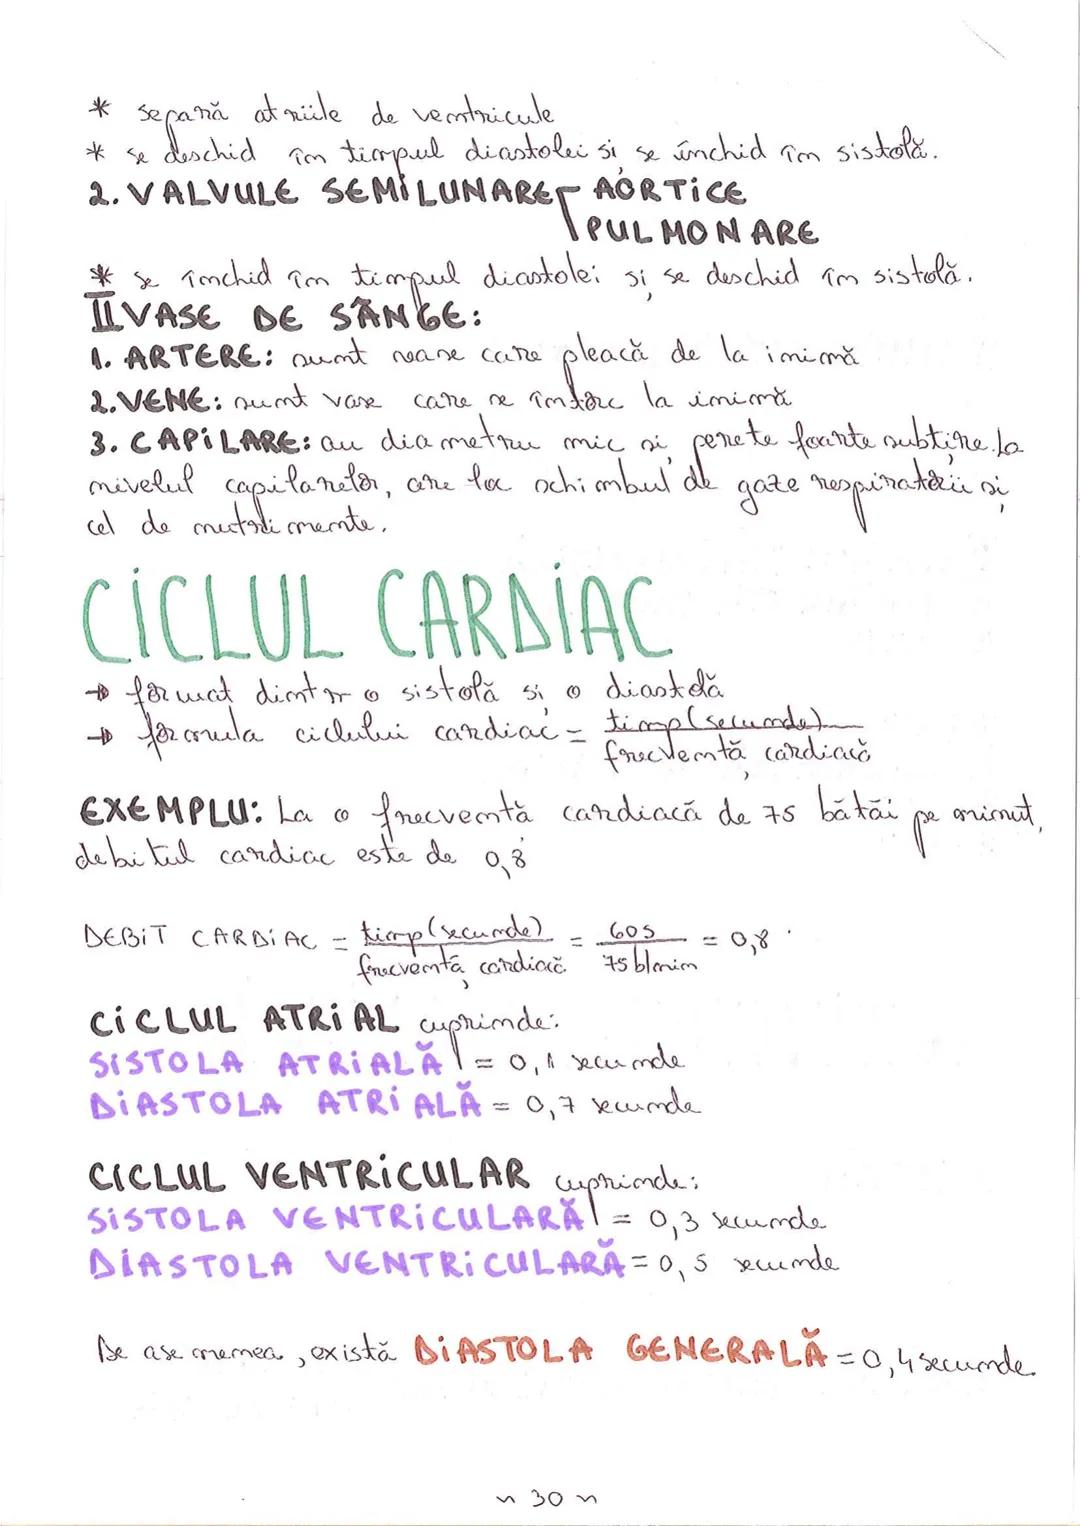 * separă atriile de ventricule
* se deschid în timpul diastolei și se închid în sistolă.
2. VALVULE SEMILUNARE AORTICE
PULMONARE
* se închid în timpul diastolei și se deschid în sistolă.
II VASE DE SÂNGE:
1. ARTERE: sunt vase care pleacă de la inimă
2. VENE: sunt vase care se întorc la inimă
3. CAPILARE: au diametru mic și perete foarte subțire. La
nivelul capilarelor, are loc schimbul de gaze respiratorii și
cel de nutrimente.
CICLUL CARDIAC
→ format dintr o sistolă și o diastolă
→ formula ciclului cardiac = timp (secunde)
frecvență cardiacă
EXEMPLU: La o frecvență cardiacă de 75 bătăi pe minut,
debitul cardiac este de 0,8
DEBIT CARDIAC = timp (secunde) = 60s = 0,8
frecvență cardiacă 75 b/min
CICLUL ATRIAL cuprinde:
SISTOLA ATRIALĂ = 0,1 secunde
DIASTOLA ATRIALĂ = 0,7 secunde
CICLUL VENTRICULAR cuprinde:
SISTOLA VENTRICULARĂ = 0,3 secunde
DIASTOLA VENTRICULARĂ = 0,5 secunde
De asemenea, există DIASTOLA GENERALĂ = 0,4 secunde.
~ 30 ~